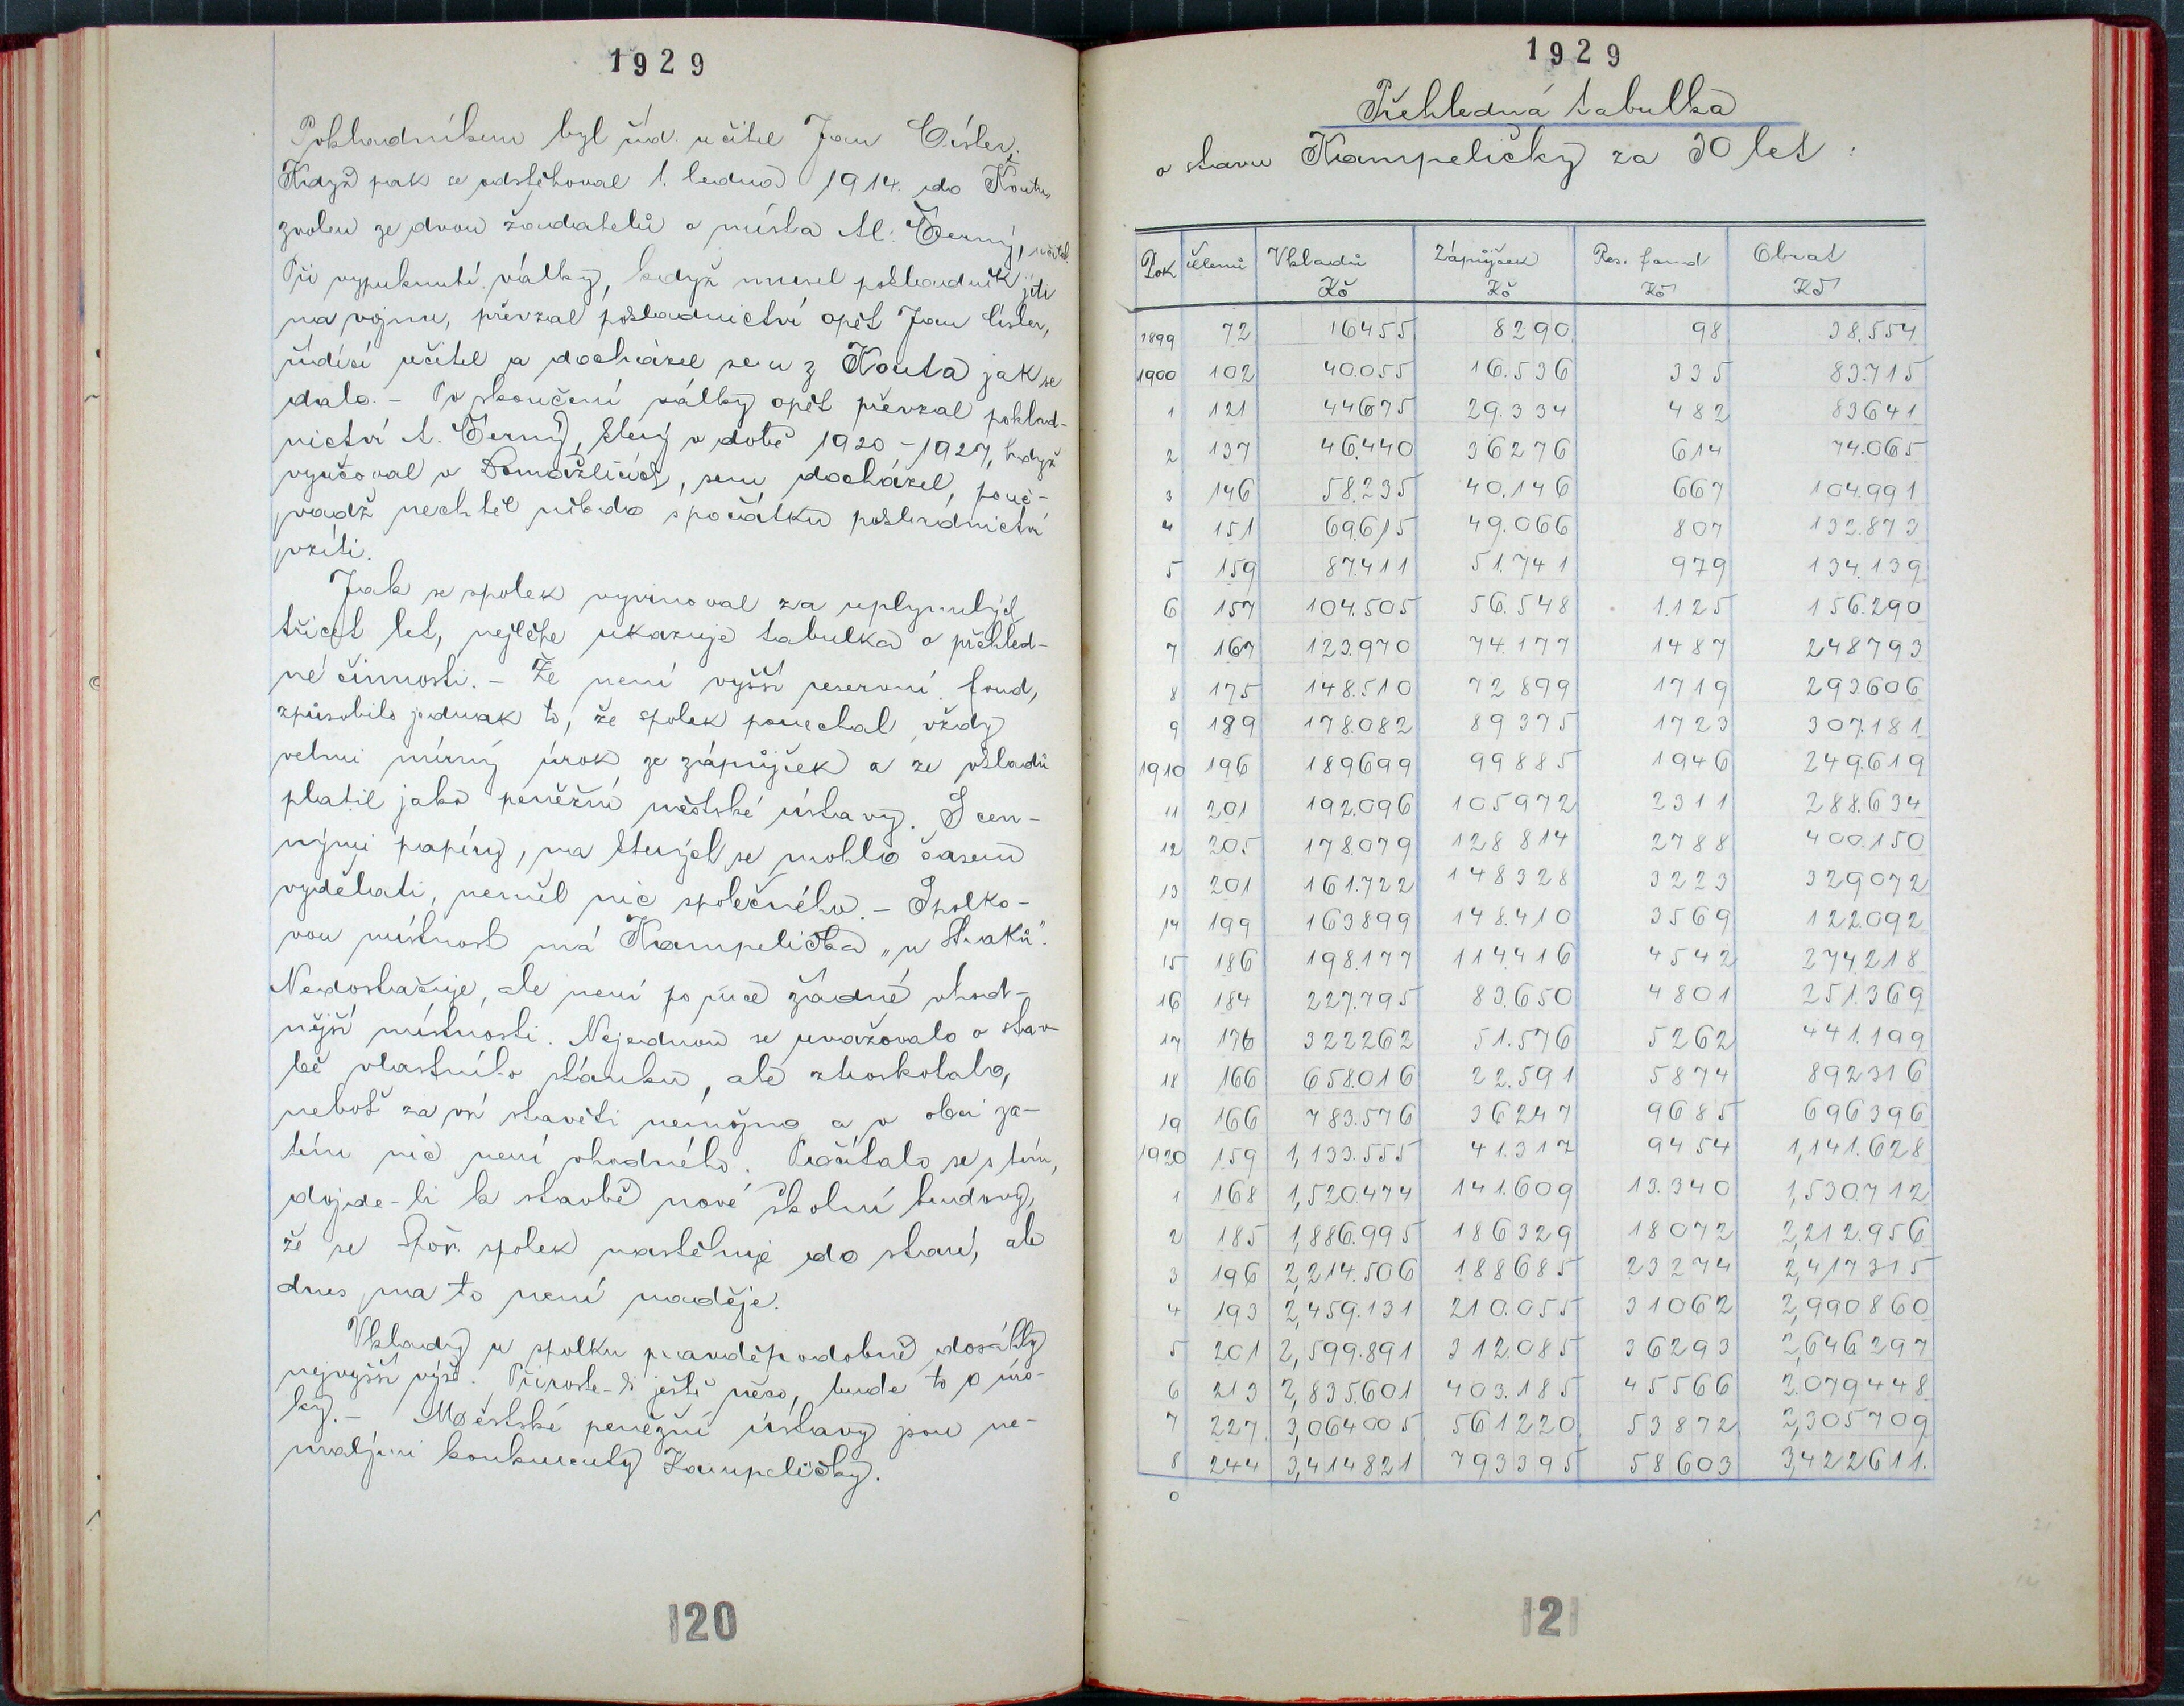 1929
Pokladníkem byl říd. učitel Jan Císler.
Když pak se odstěhoval 1. ledna 1914. do Kouta,
zvolen ze dvou žadatelů o místo Al. Černý, učitel.
Při vypuknutí války, když musel pokladník jíti
na vojnu, převzal pokladnictví opět Jan Císler,
řídící učitel a docházel sem z Kouta jak se
dalo. - Po skončení války opět převzal poklad-
nictví A. Černý, který v době 1920 - 1927, když
vyučoval v Domažlicích, sem docházel, poně-
vadž nechtěl nikdo s počátku pokladnictví
vzíti.
Jak se spolek vyvinoval za uplynulých
třicet let, nejlépe ukazuje tabulka o přehled-
né činnosti. - Že není vyšší reservní fond,
způsobilo jednak to, že spolek ponechal vždy
velmi mírný úrok ze zápůjček a ze vkladů
platil jako peněžní městské ústavy. S cen-
nými papíry, na kterých se mohlo časem
vydělati, neměl nic společného. - Spolko-
vou místnost má Kampelička „u Straků".
Nedostačuje, ale není po ruce žádné vhod-
nější místnosti. Nejednou se uvažovalo o stav-
bě vlastního stánku, ale ztroskotalo,
neboť za vsí stavěti nemožno a v obci za-
tím nic není vhodného. Počítalo se s tím,
dojde-li k stavbě nové školní budovy,
že se Spoř. spolek nastěhuje do staré, ale
dnes na to není naděje.
Vklady u spolku pravděpodobně dosáhly
nejvyšší výše. Přiroste-li ještě něco, bude to o úro-
ky. - Městské peněžní ústavy jsou ne-
malými konkurenty Kampeličky.
120
1929
Přehledná tabulka
o stavu Kampeličky za 30 let:
Rok členů Vkladů Kč Zápůjček Kč Res. fond Kč Obrat Kč
1899 72 16455 8290 98 38.554
1900 102 40.055 16.536 335 83.715
1 121 44675 29.334 482 83641
2 137 46.440 36276 614 74.065
3 146 58.235 40.146 667 104.991
4 151 69.615 49.066 807 132.873
5 159 87.411 51.741 979 134.139
6 157 104.505 56.548 1.125 156.290
7 167 123.970 74.177 1487 248793
8 175 148.510 72899 1719 293.606
9 189 178.082 89375 1723 307.181
1910 196 189699 99885 1946 249.619
11 201 192.096 105972 2311 288.634
12 205 178.079 128814 2788 400.150
13 201 161.722 148328 3223 329072
14 199 163899 148.410 3569 122.092
15 186 198.177 114.416 4542 274.218
16 184 227.795 83.650 4801 251.369
17 176 322262 51.576 5262 441.199
18 166 658.016 22.591 5874 892316
19 166 783.576 36247 9685 696396
1920 159 1,133.555 41.317 9454 1,141.628
1 168 1,520.474 141.609 13.340 1,530.712
2 185 1,886.995 186329 18072 2,212.956
3 196 2,214.506 188685 23274 2,417315
4 193 2,459.131 210.055 31062 2,990860
5 201 2,599.891 312.085 36293 2,646297
6 213 2,835601 403.185 45566 2.079448
7 227 3,064005 561220 53872 2,305709
8 244 3,414821 793395 58603 3,422611.
121